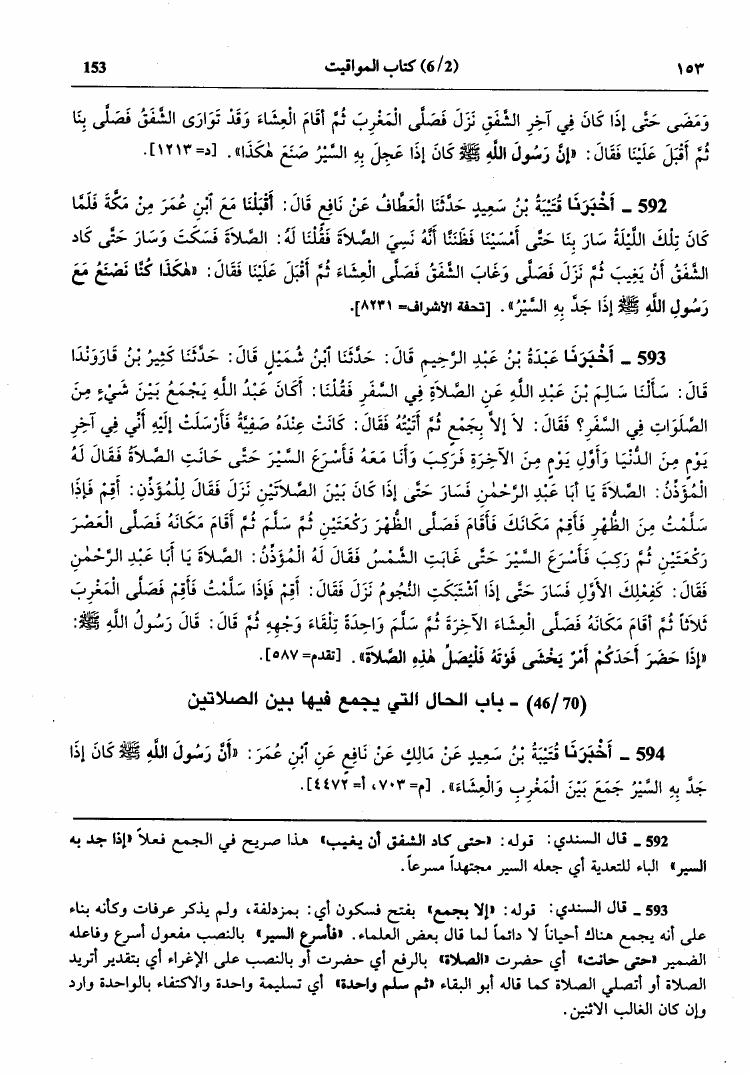 ١٥٣ (6/2) كتاب المواقيت 153
وَمَضَى حَتَّى إِذَا كَانَ فِي آخِرِ الشَّفَقِ نَزَلَ فَصَلَّى الْمَغْرِبَ ثُمَّ أَقَامَ الْعِشَاءَ وَقَدْ تَوَارَى الشَّفَقُ فَصَلَّى بِنَا
ثُمَّ أَقْبَلَ عَلَيْنَا فَقَالَ: «إِنَّ رَسُولَ اللَّهِ ﷺ كَانَ إِذَا عَجِلَ بِهِ السَّيْرُ صَنَعَ هٰكَذَا». [د= ١٢١٣].
592 ـ أَخْبَرَنَا قُتَيْبَةُ بْنُ سَعِيدٍ حَدَّثَنَا الْعَطَّافُ عَنْ نَافِعٍ قَالَ: أَقْبَلْنَا مَعَ ٱبْنِ عُمَرَ مِنْ مَكَّةَ فَلَمَّا
كَانَ تِلْكَ اللَّيْلَةُ سَارَ بِنَا حَتَّى أَمْسَيْنَا فَظَنَنَّا أَنَّهُ نَسِيَ الصَّلاَةَ فَقُلْنَا لَهُ: الصَّلاَةَ فَسَكَتَ وَسَارَ حَتَّى كَادَ
الشَّفَقُ أَنْ يَغِيبَ ثُمَّ نَزَلَ فَصَلَّى وَغَابَ الشَّفَقُ فَصَلَّى الْعِشَاءَ ثُمَّ أَقْبَلَ عَلَيْنَا فَقَالَ: «هٰكَذَا كُنَّا نَصْنَعُ مَعَ
رَسُولِ اللَّهِ ﷺ إِذَا جَدَّ بِهِ السَّيْرُ». [تحفة الأشراف= ٨٢٣١].
593 ـ أَخْبَرَنَا عَبْدَةُ بْنُ عَبْدِ الرَّحِيمِ قَالَ: حَدَّثَنَا ٱبْنُ شُمَيْلٍ قَالَ: حَدَّثَنَا كَثِيرُ بْنُ قَارَوَنْدَا
قَالَ: سَأَلْنَا سَالِمَ بْنَ عَبْدِ اللَّهِ عَنِ الصَّلاَةِ فِي السَّفَرِ فَقُلْنَا: أَكَانَ عَبْدُ اللَّهِ يَجْمَعُ بَيْنَ شَيْءٍ مِنَ
الصَّلَوَاتِ فِي السَّفَرِ؟ فَقَالَ: لاَ إِلاَّ بِجَمْعٍ ثُمَّ أَتَيْتُهُ فَقَالَ: كَانَتْ عِنْدَهُ صَفِيَّةُ فَأَرْسَلَتْ إِلَيْهِ أَنِّي فِي آخِرِ
يَوْمٍ مِنَ الدُّنْيَا وَأَوَّلِ يَوْمٍ مِنَ الآخِرَةِ فَرَكِبَ وَأَنَا مَعَهُ فَأَسْرَعَ السَّيْرَ حَتَّى حَانَتِ الصَّلاَةُ فَقَالَ لَهُ
الْمُؤَذِّنُ: الصَّلاَةَ يَا أَبَا عَبْدِ الرَّحْمٰنِ فَسَارَ حَتَّى إِذَا كَانَ بَيْنَ الصَّلاَتَيْنِ نَزَلَ فَقَالَ لِلْمُؤَذِّنِ: أَقِمْ فَإِذَا
سَلَّمْتُ مِنَ الظُّهْرِ فَأَقِمْ مَكَانَكَ فَأَقَامَ فَصَلَّى الظُّهْرَ رَكْعَتَيْنِ ثُمَّ سَلَّمَ ثُمَّ أَقَامَ مَكَانَهُ فَصَلَّى الْعَصْرَ
رَكْعَتَيْنِ ثُمَّ رَكِبَ فَأَسْرَعَ السَّيْرَ حَتَّى غَابَتِ الشَّمْسُ فَقَالَ لَهُ الْمُؤَذِّنُ: الصَّلاَةَ يَا أَبَا عَبْدِ الرَّحْمٰنِ
فَقَالَ: كَفِعْلِكَ الأَوَّلِ فَسَارَ حَتَّى إِذَا ٱشْتَبَكَتِ النُّجُومُ نَزَلَ فَقَالَ: أَقِمْ فَإِذَا سَلَّمْتُ فَأَقِمْ فَصَلَّى الْمَغْرِبَ
ثَلاَثاً ثُمَّ أَقَامَ مَكَانَهُ فَصَلَّى الْعِشَاءَ الآخِرَةَ ثُمَّ سَلَّمَ وَاحِدَةً تِلْقَاءَ وَجْهِهِ ثُمَّ قَالَ: قَالَ رَسُولُ اللَّهِ ﷺ:
«إِذَا حَضَرَ أَحَدَكُمْ أَمْرٌ يَخْشَى فَوْتَهُ فَلْيُصَلِّ هٰذِهِ الصَّلاَةَ». [تقدم= ٥٨٧].
(46/70) - باب الحال التي يجمع فيها بين الصلاتين
594 ـ أَخْبَرَنَا قُتَيْبَةُ بْنُ سَعِيدٍ عَنْ مَالِكٍ عَنْ نَافِعٍ عَنِ ٱبْنِ عُمَرَ: «أَنَّ رَسُولَ اللَّهِ ﷺ كَانَ إِذَا
جَدَّ بِهِ السَّيْرُ جَمَعَ بَيْنَ الْمَغْرِبِ وَالْعِشَاءَ». [م= ٧٠٣، أ= ٤٤٧٢].
592 ـ قال السندي: قوله: «حتى كاد الشفق أن يغيب» هذا صريح في الجمع فعلاً «إذا جد به
السير» الباء للتعدية أي جعله السير مجتهداً مسرعاً.
593 ـ قال السندي: قوله: «إلا بجمع» بفتح فسكون أي: بمزدلفة، ولم يذكر عرفات وكأنه بناء
على أنه يجمع هناك أحياناً لا دائماً لما قال بعض العلماء. «فأسرع السير» بالنصب مفعول أسرع وفاعله
الضمير «حتى حانت» أي حضرت «الصلاة» بالرفع أي حضرت أو بالنصب على الإغراء أي بتقدير أتريد
الصلاة أو أتصلي الصلاة كما قاله أبو البقاء «ثم سلم واحدة» أي تسليمة واحدة والاكتفاء بالواحدة وارد
وإن كان الغالب الاثنين.